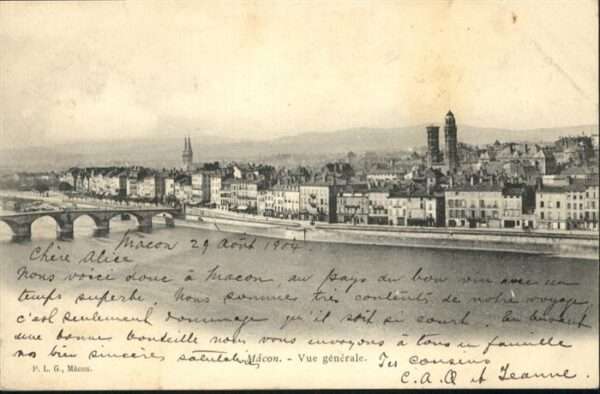 Macon 29 Août 1904
Chère Alice
Nous voici donc à Macon, au pays du bon vin avec un
temps superbe. Nous sommes très contents de notre voyage,
c'est seulement dommage qu'il soit si court. En buvant
une bonne bouteille nous vous envoyons à tous en famille
nos bien sincères salutations
Tes cousins
C. A. Q et Jeanne.
Mâcon. - Vue générale.
P. L. G., Mâcon.